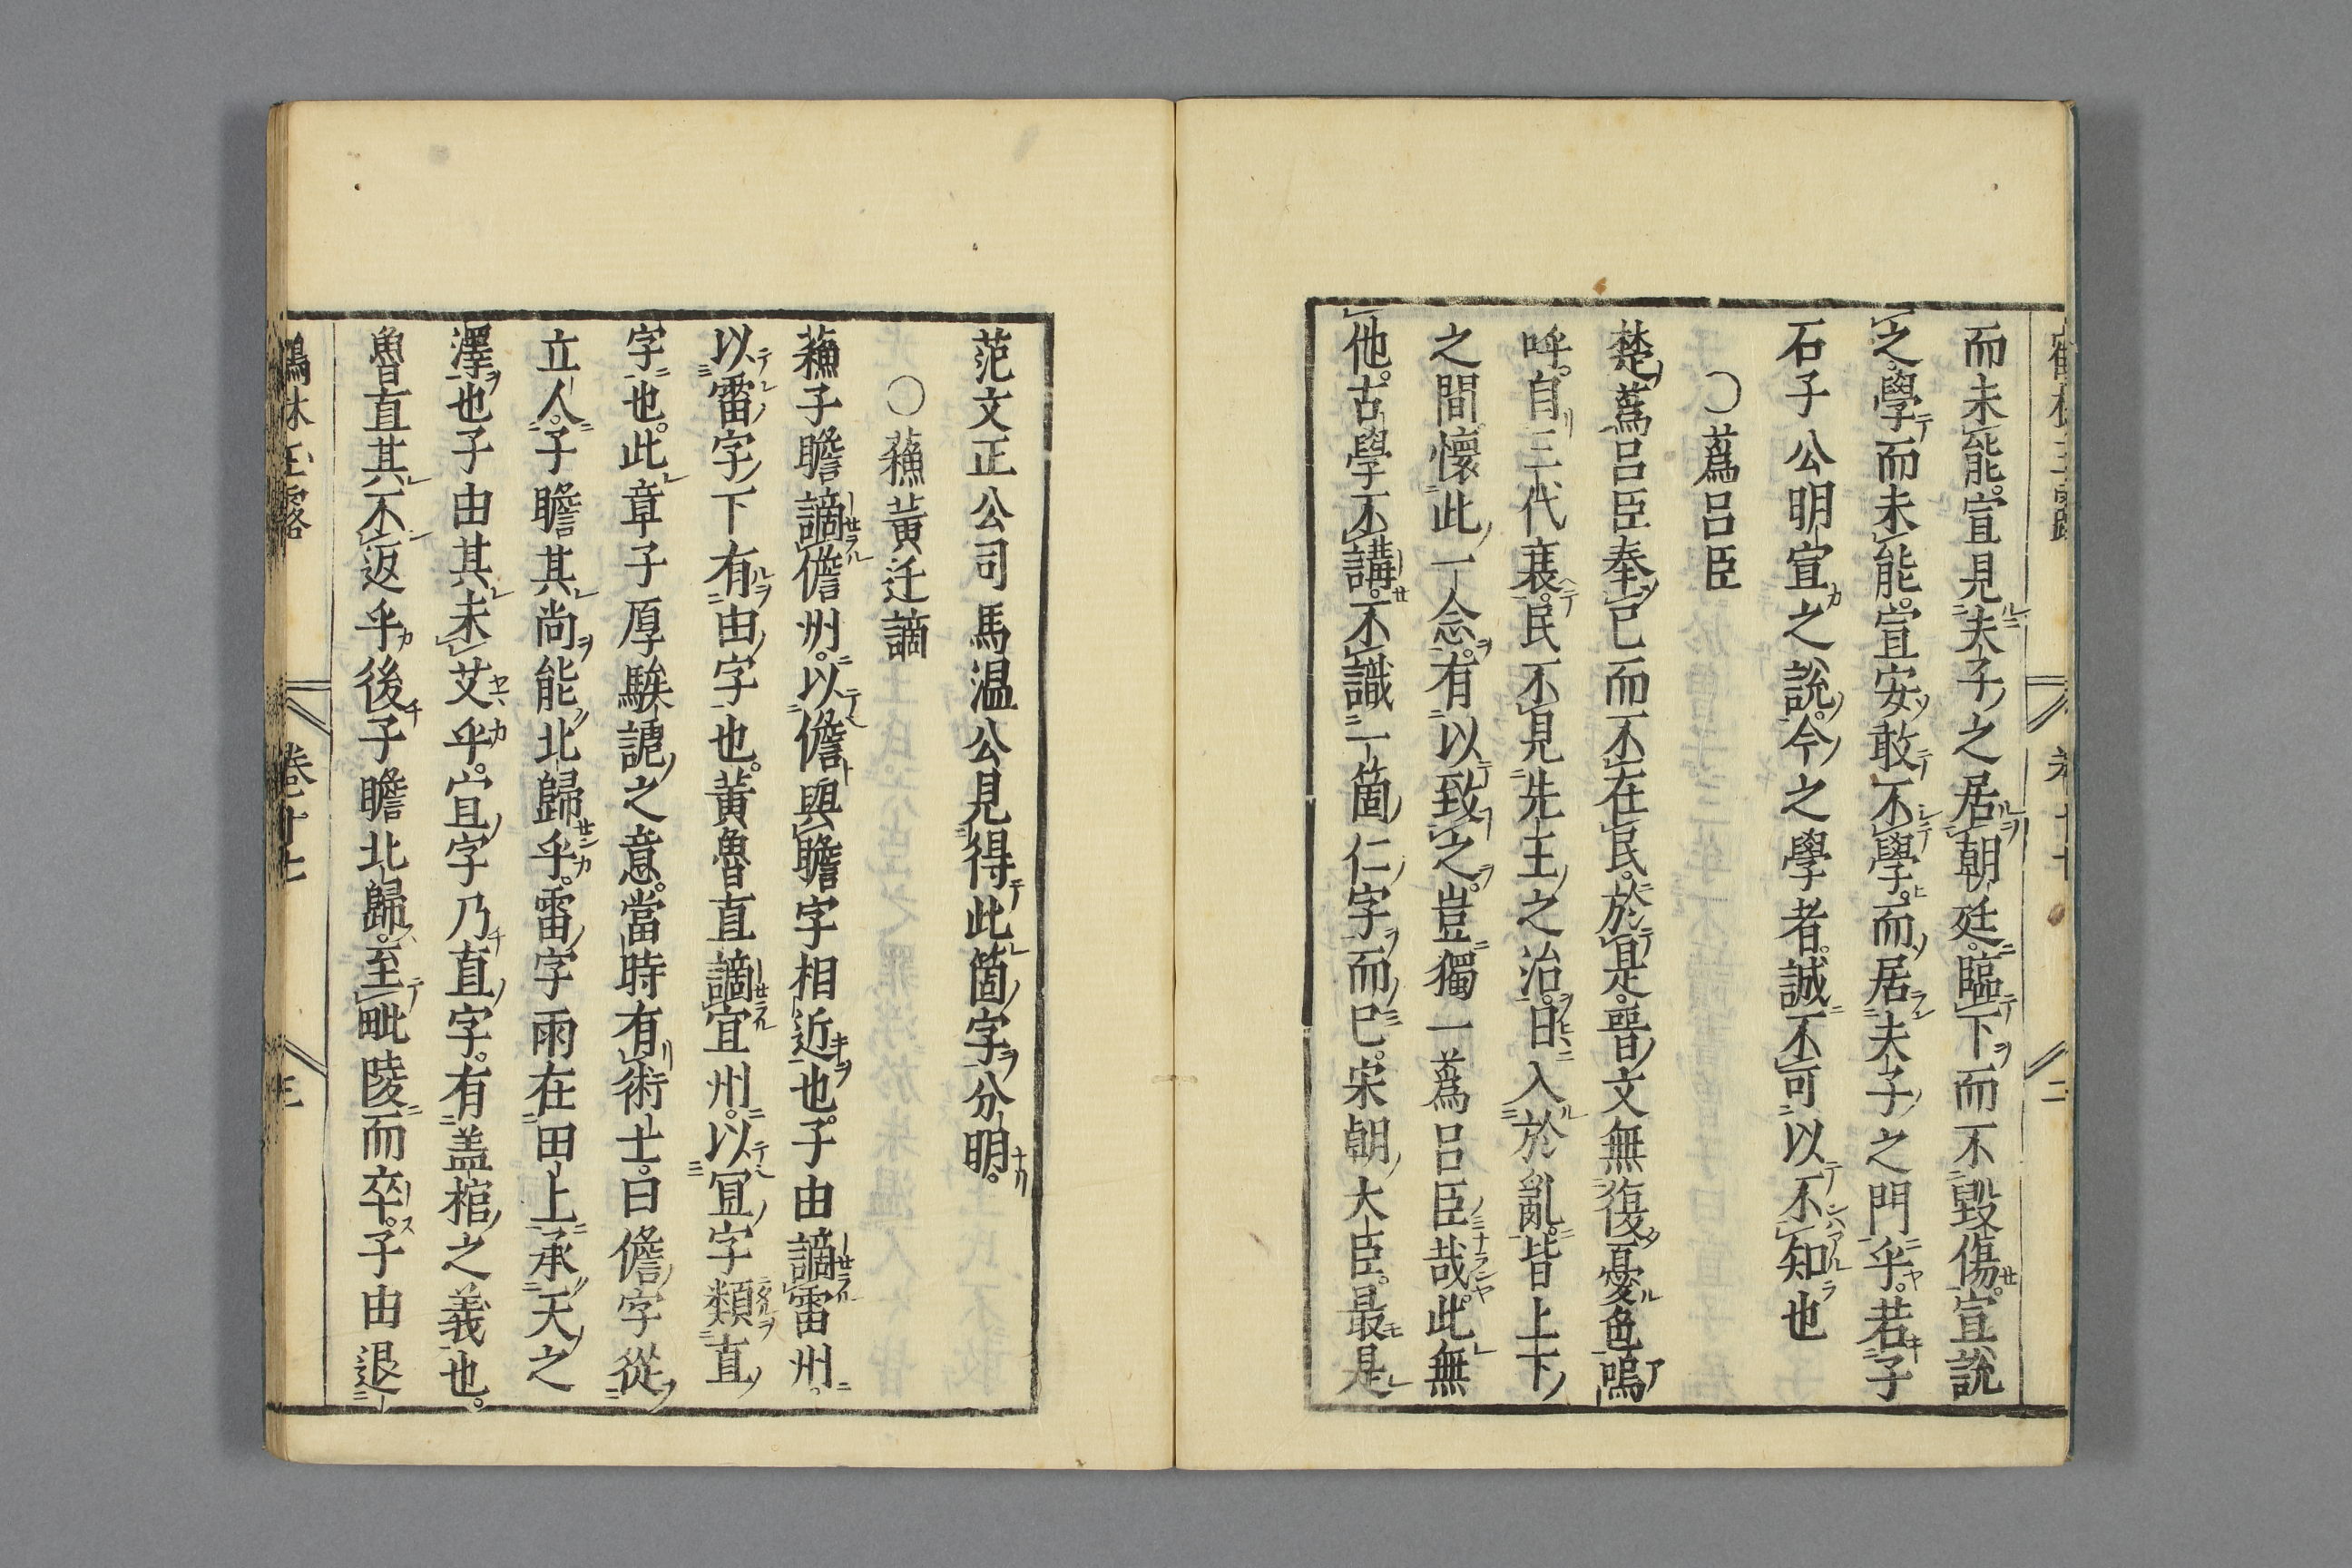 而未能宣見夫子之居朝廷臨下而不毀傷宣說
之學而未能宣安敢不學而居夫子之門乎若子
石子公明宣之說今之學者誠不可以不知也
〇蔿呂臣
楚蔿呂臣奉己而不在民於是晉文無復憂色嗚
呼自三代衰民不見先王之治日入於亂皆上下
之間懷此一念有以致之豈獨一蔿呂臣哉此無
他古學不講不識一箇仁字而已宋朝大臣最是
范文正公司馬温公見得此箇字分明
〇蘓黄迁謫
蘓子瞻謫儋州以儋與瞻字相近也子由謫雷州
以雷字下有由字也黄魯直謫宜州以冝字類直
字也此章子厚騃謔之意當時有術士曰儋字從
立人子瞻其尚能北歸乎雷字雨在田上承天之
澤也子由其未艾乎宜字乃直字有盖棺之義也
魯直其不返乎後子瞻北歸至毗陵而卒子由退
鶴林玉露 卷十七 三